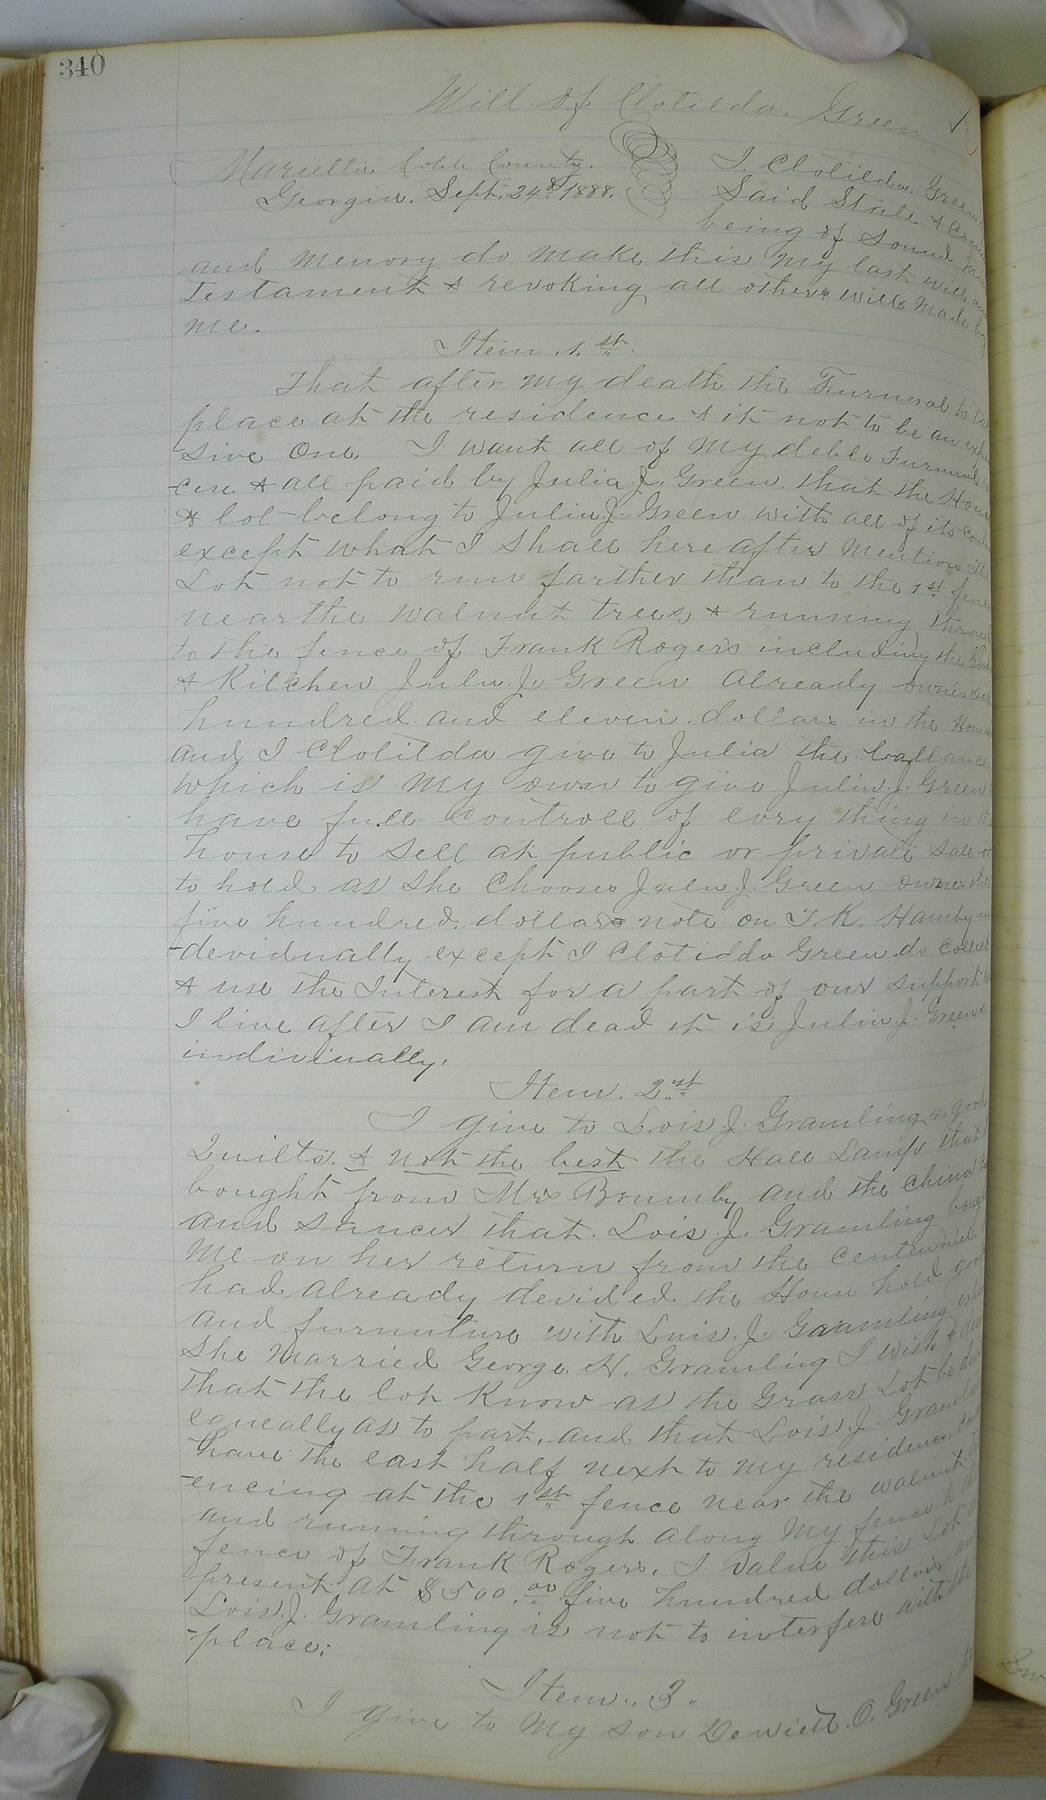 340
Will of Clotilda. Green.
Marietta Cobb County.
Georgia. Sept. 24th 1888.
I. Clotilda. Green
Said State & 
being of Sound
and memory do make this my last will
Testament & revoking all others wills made by
me.
Item. 1.st
That after my death the Furneral to
place at the residence & it not to be an
sive One. I want all of my debts Furneral
cen & all paid by Julia J. Green. that the
& lot belong to Julia J. Green with all of its
except what I Shall here after Mention
Lot not to run farther than to the 1st
near the walnut trees, & running
to the fence of Frank Rogers including the
& Kitchen Julia. J. Green already owns
hundred and eleven dollars in the
and I Clotilda give to Julia the ballance
which is my own to give Julia. J. Green
have full Controll of evry thing in
house to Sell at public or private Sale
to hold as She Chooses Julia J. Green owns
five hundred. dollars note on T. K. Hamby
-devidually except I Clotilda Green do
& use the Interest for a part of our support
I live after I am dead it is Julia J. Green
indiviually.
Item. 2.st
I give to Lois. J. Gramling
Quilts. & not the best the Hall Lamp that
bought from Mrs Brumby and the China
and Saucer that. Lois. J. Gramling
me on her return from the Centennial
had already devided the House hold
and furniture with Lois. J. Gramling
She Married George. H. Gramling I wish &
that the lot Know as the Grass Lot be
equeally as to part. and that Lois J.
have the east half next to my residence
-encing at the 1st fence near the walnut
and running through along My fence
fence of Frank Rogers. I Value this Lot
present at $500.00 five hundred dollars
Lois. J. Gramling is not to interfere with the
-place;
Item.. 3..
I give to My Son Dewiett. O. Green